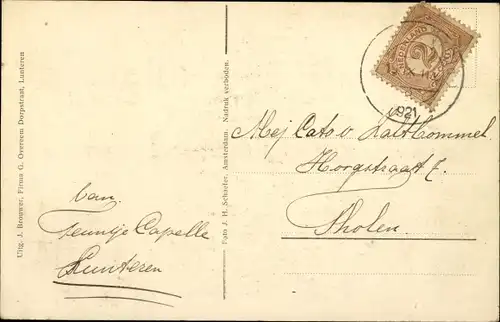 Uitg. J. Brouwer, Firma G. Overeem Dorpstraat, Lunteren
van
Teuntje Capelle
Lunteren
Foto J. H. Schaefer, Amsterdam. Nadruk verboden.
NEDERLAND
2
1921
Mej Cato v. Zalt Bommel.
Hoogstraat
Tholen.